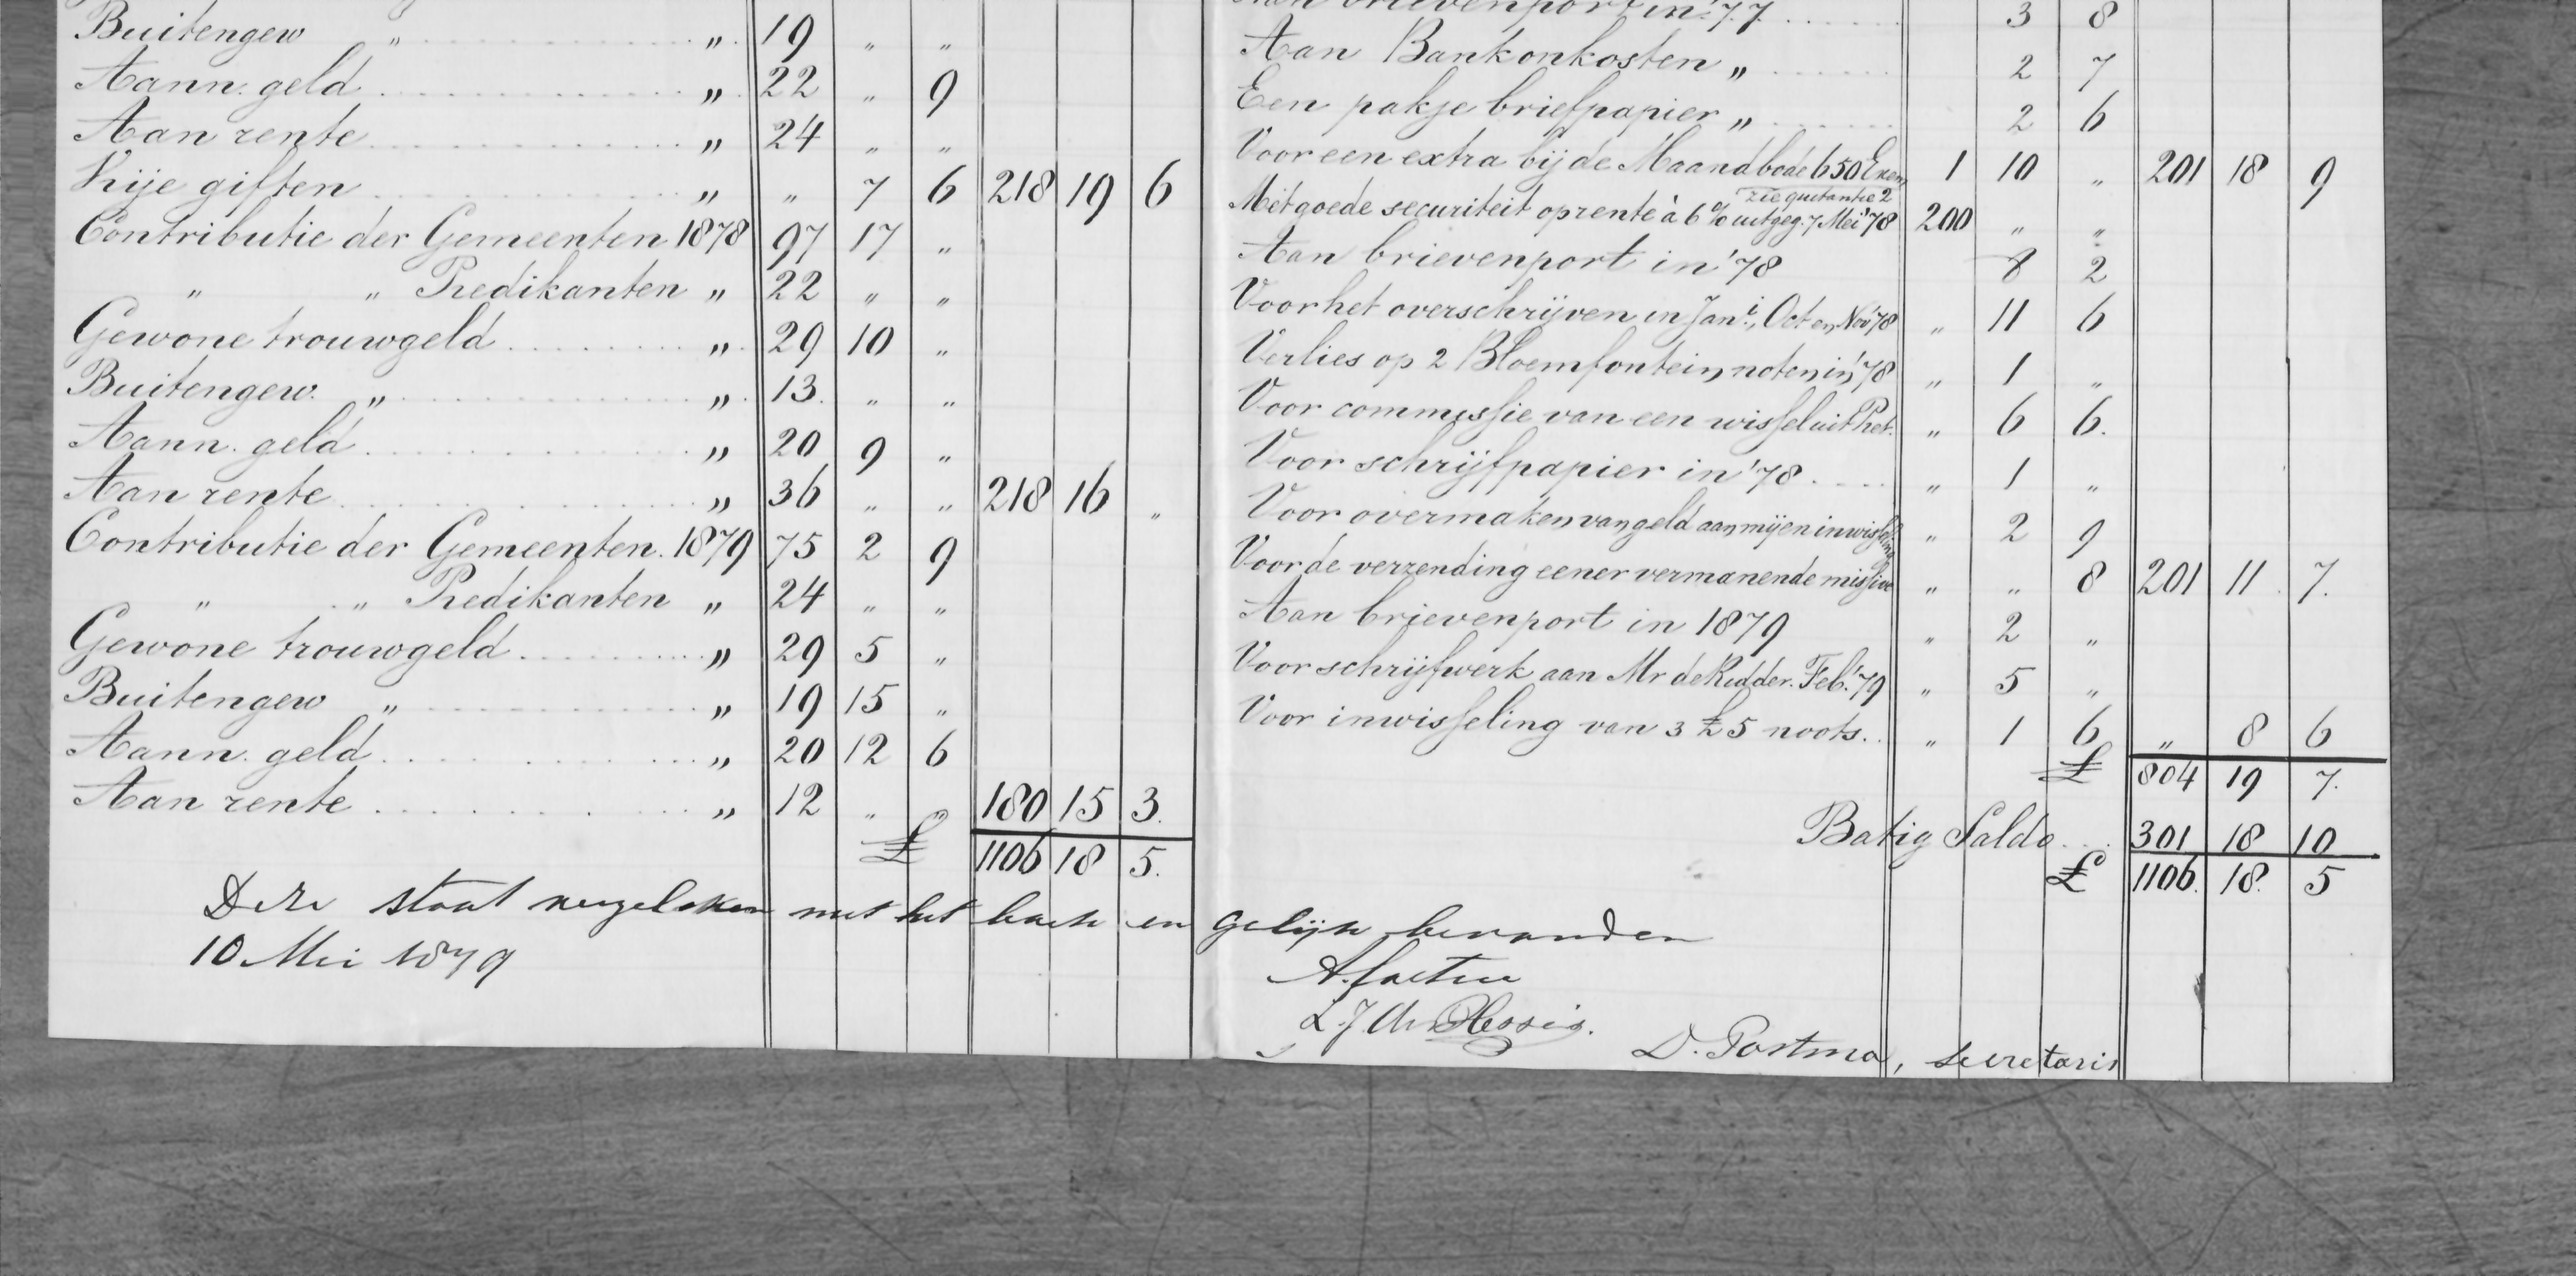 Buitengew " " 19 " "
Aann. geld " 22 " 9
Aan rente " 24 " "
Vrije giften " " 7 6 218 19 6
Contributie der Gemeenten 1878 97 17 "
" " Predikanten " 22 " "
Gewone trouwgeld " 29 10 "
Buitengew. " " 13 " "
Aann. geld " 20 9 "
Aan rente " 36 " " 218 16 "
Contributie der Gemeenten. 1879 75 2 9
" " Predikanten " 24 " "
Gewone trouwgeld " 29 5 "
Buitengew " " 19 15 "
Aann. geld " 20 12 6
Aan rente " 12 " " 180 15 3.
£ 1106 18 5.
Aan brievenport in '77 3 8
Aan Bankonkosten " 2 7
Een pakje briefpapier " 2 6
Voor een extra bij de Maandbode 650 Exem 1 10 " 201 18 9
zie quitantie 2
Met goede securiteit op rente à 6 % uitgeg. 7 Mei '78 200 " "
Aan brievenport in '78 8 2
Voor het overschrijven in Jani., Oct en Nov '78 " 11 6
Verlies op 2 Bloemfontein noten in '78 " 1 "
Voor commissie van een wissel uit Pret. " 6 6.
Voor schrijfpapier in '78 " 1 "
Voor overmaken van geld aan mij en inwisseling " 2 9
Voor de verzending eener vermanende missive " " 8 201 11 7.
Aan brievenport in 1879 " 2 "
Voor schrijfwerk aan Mr de Ridder. Feb. '79 " 5 "
Voor inwisseling van 3 £5 noots. " 1 6 " 8 6
£ 804 19 7.
Batig Saldo 301 18 10
£ 1106. 18. 5
Deze staat vergeleken met het boek en gelijk bevonden
10 Mei 1879
L. J. du Plessis.
D. Postma, secretaris